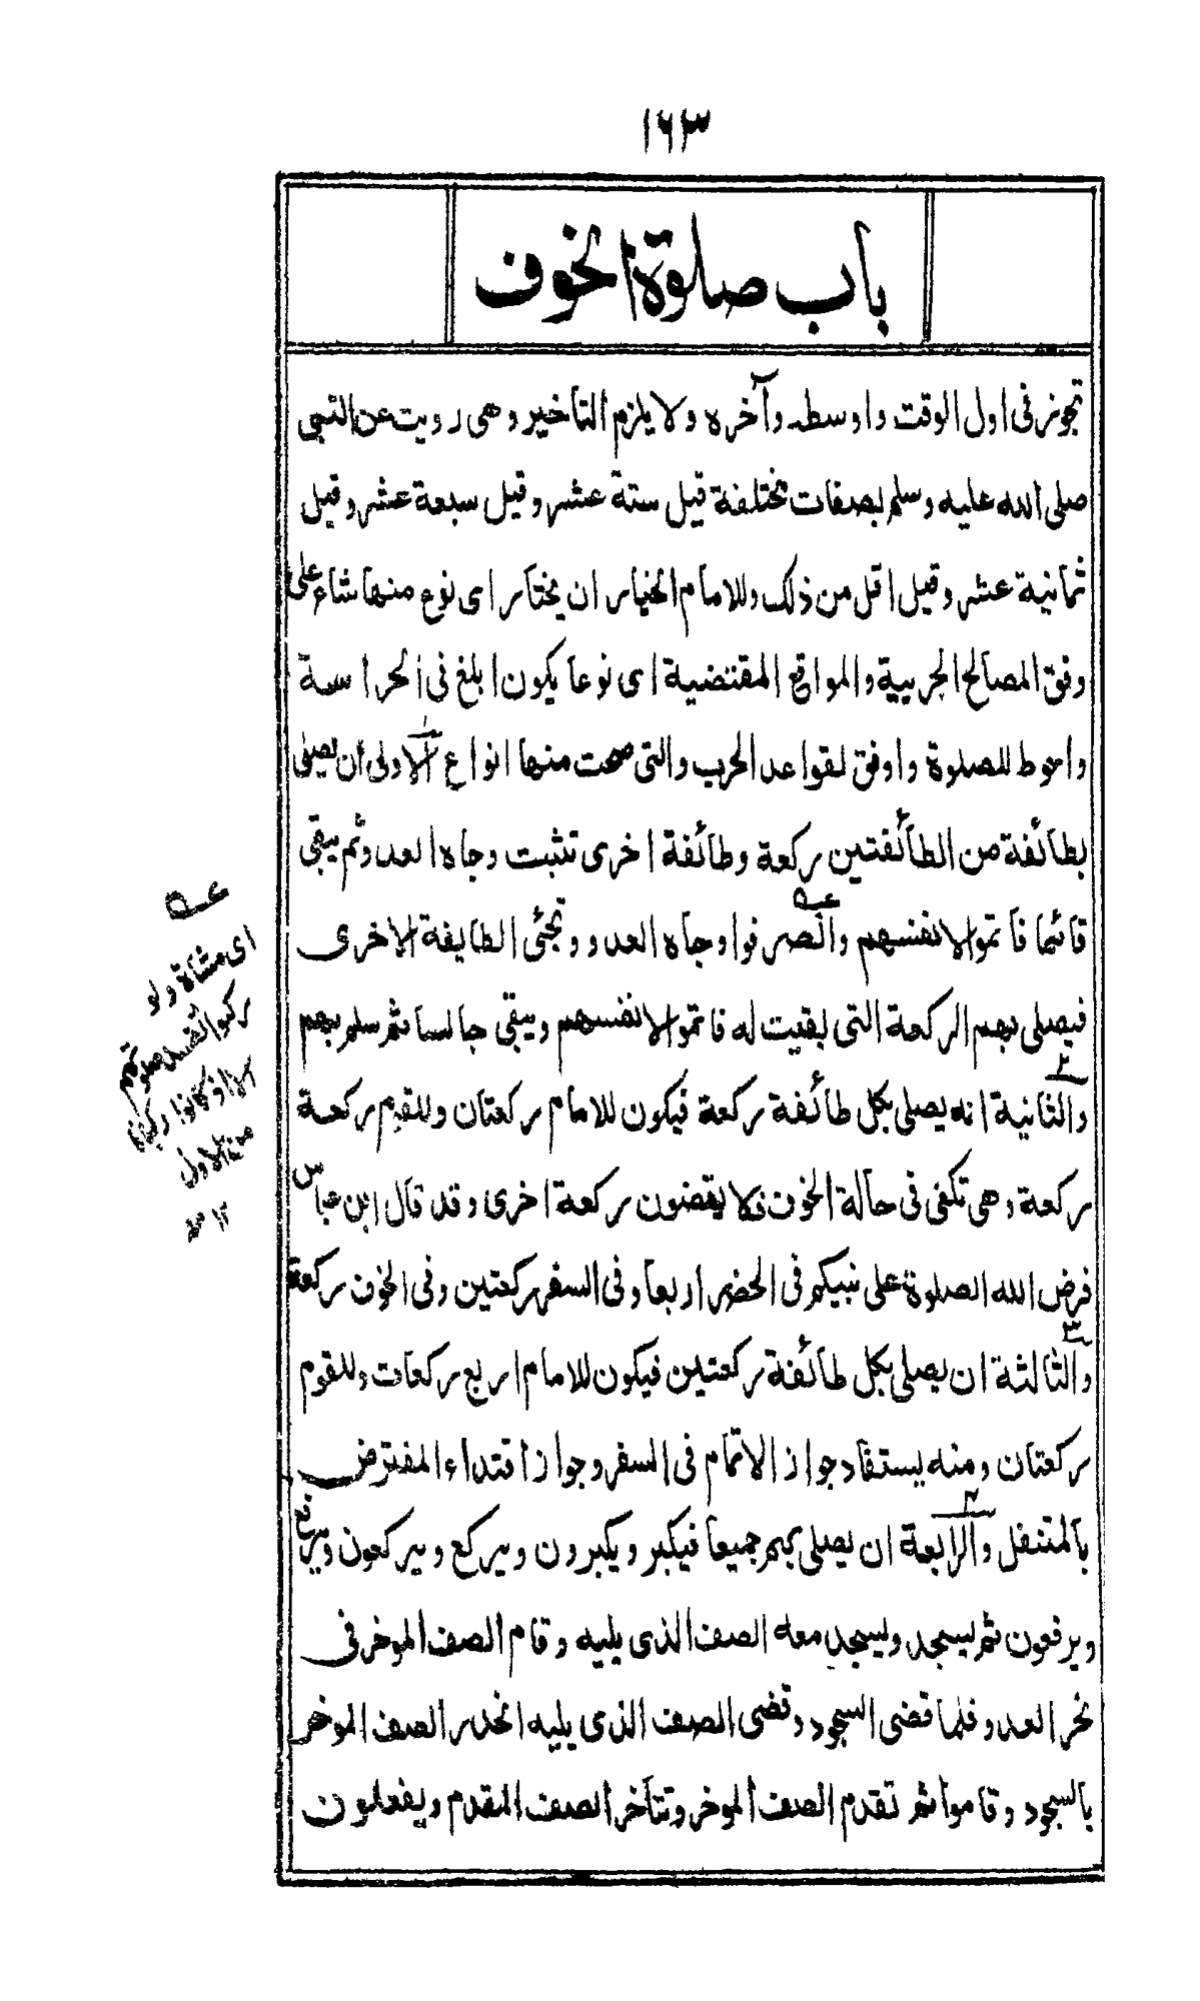 ١٦٣
باب صلوة الخوف
تجوز فى اول الوقت واوسطه وآخره ولا يلزم التاخير وهى رويت عن النبى
صلى الله عليه وسلم بصفات مختلفة قيل ستة عشر وقيل سبعة عشر وقيل
ثمانية عشر وقيل اقل من ذلك وللامام الخيار ان يختار اى نوع منها شاء على
وفق المصالح الحربية والمواقع المقتضية اى نوعا يكون ابلغ فى الحراسة
واحوط للصلوة واوفق لقواعد الحرب والتى صحت منها انواع الاولى ان يصلى
بطائفة من الطائفتين ركعة وطائفة اخرى تثبت وجاه العدو ثم يبقى
قائما فاتموا لانفسهم وانصرفوا وجاه العدو وتجئى الطايفة الاخرى
فيصلى بهم الركعة التى بقيت له فاتموا لانفسهم ويبقى جالسا ثم سلم بهم
٢
والثانية انه يصلى بكل طائفة ركعة فيكون للامام ركعتان وللقوم ركعة
ركعة وهى تكفى فى حالة الخوف فلا يقضون ركعة اخرى وقد قال ابن عباس
فرض الله الصلوة على نبيكم فى الحضر اربعا وفى السفر ركعتين وفى الخوف ركعة
٣
والثالثة ان يصلى بكل طائفة ركعتين فيكون للامام اربع ركعات وللقوم
ركعتان ومنه يستفاد جواز الاتمام فى السفر وجواز اقتداء المفترض
بالمتنفل والرابعة ان يصلى بهم جميعا فيكبر ويكبرون ويركع ويركعون ويرفع
ويرفعون ثم يسجد ويسجد معه الصف الذى يليه وقام الصف الموخر فى
نحر العدو فلما قضى السجود وقضى الصف الذى يليه انحدر الصف الموخر
بالسجود وقاموا ثم تقدم الصف الموخر وتتأخر الصف المقدم ويفعلون
عـه
اى مشاة ولو
ركبوا
الا اذ كانوا
من الاول
١٢ منه